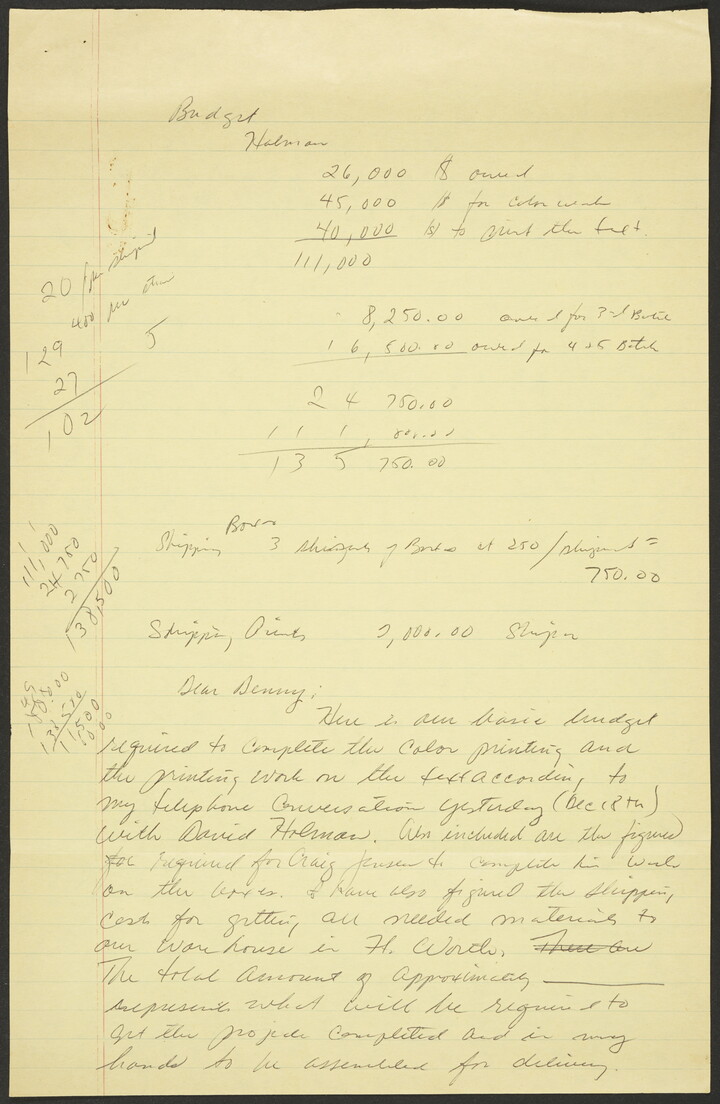 Budget
Holman
26,000 $ owed
45,000 $ for color work
40,000 $ to print the text.
111,000
8,250.00 owed for 3rd Batch
16,500.00 owed for 4 & 5 Batch
24 750.00
111,000.00
135 750.00
20 / per shipment
400 per
5
129
27
102
Boxes
Shipping 3 shipments of Boxes at 250 / shipment =
750.00
111,000
24 750
2 750
138,500
Shipping Prints 2,000.00
Dear Denny;
Here is our basic budget
required to complete the color printing and
the printing work on the text according to
my telephone conversation yesterday (Dec 18th)
with David Holman. Also included are the figures
for required for Craig Jensen to complete his work
on the boxes. I have also figured the shipping
costs for getting all needed materials to
our warehouse in Ft. Worth. There are
The total amount of approximately
represents what will be required to
get the project completed and in my
hands to be assembled for delivery.